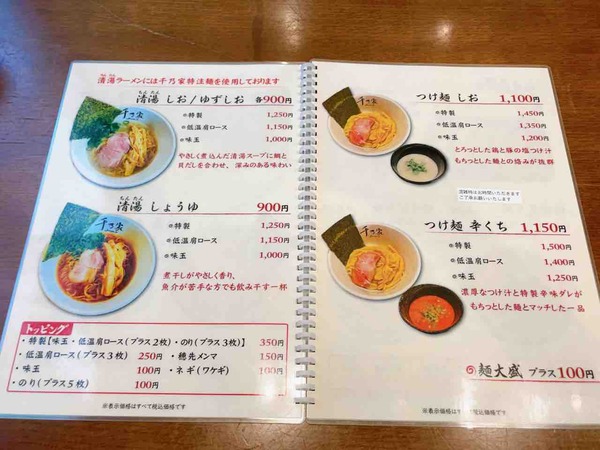 清湯ラーメンには千乃家特注麺を使用しております
ちん たん
清湯 しお/ゆずしお 各900円
千乃家
特製 1,250円
低温肩ロース 1,150円
味玉 1,000円
やさしく煮込んだ清湯スープに鯛と
貝だしを合わせ、深みのある味わい
ちん たん
清湯 しょうゆ 900円
千乃家
特製 1,250円
低温肩ロース 1,150円
味玉 1,000円
煮干しがやさしく香り、
魚介が苦手な方でも飲み干す一杯
トッピング
・特製【味玉・低温肩ロース(プラス2枚)・のり(プラス3枚)】 350円
・低温肩ロース(プラス3枚) 250円 ・穂先メンマ 150円
・味玉 100円 ・ネギ(ワケギ) 100円
・のり(プラス5枚) 100円
※表示価格はすべて税込価格です
つけ麺 しお 1,100円
千乃家
特製 1,450円
低温肩ロース 1,350円
味玉 1,200円
とろっとした鶏と豚の塩つけ汁
もちっとした麺との絡みが抜群
混雑時はお時間いただきます
ご了承お願いいたします
つけ麺 辛くち 1,150円
千乃家
特製 1,500円
低温肩ロース 1,400円
味玉 1,250円
濃厚なつけ汁と特製辛味ダレが
もちっとした麺とマッチした一品
麺大盛 プラス100円
※表示価格はすべて税込価格です